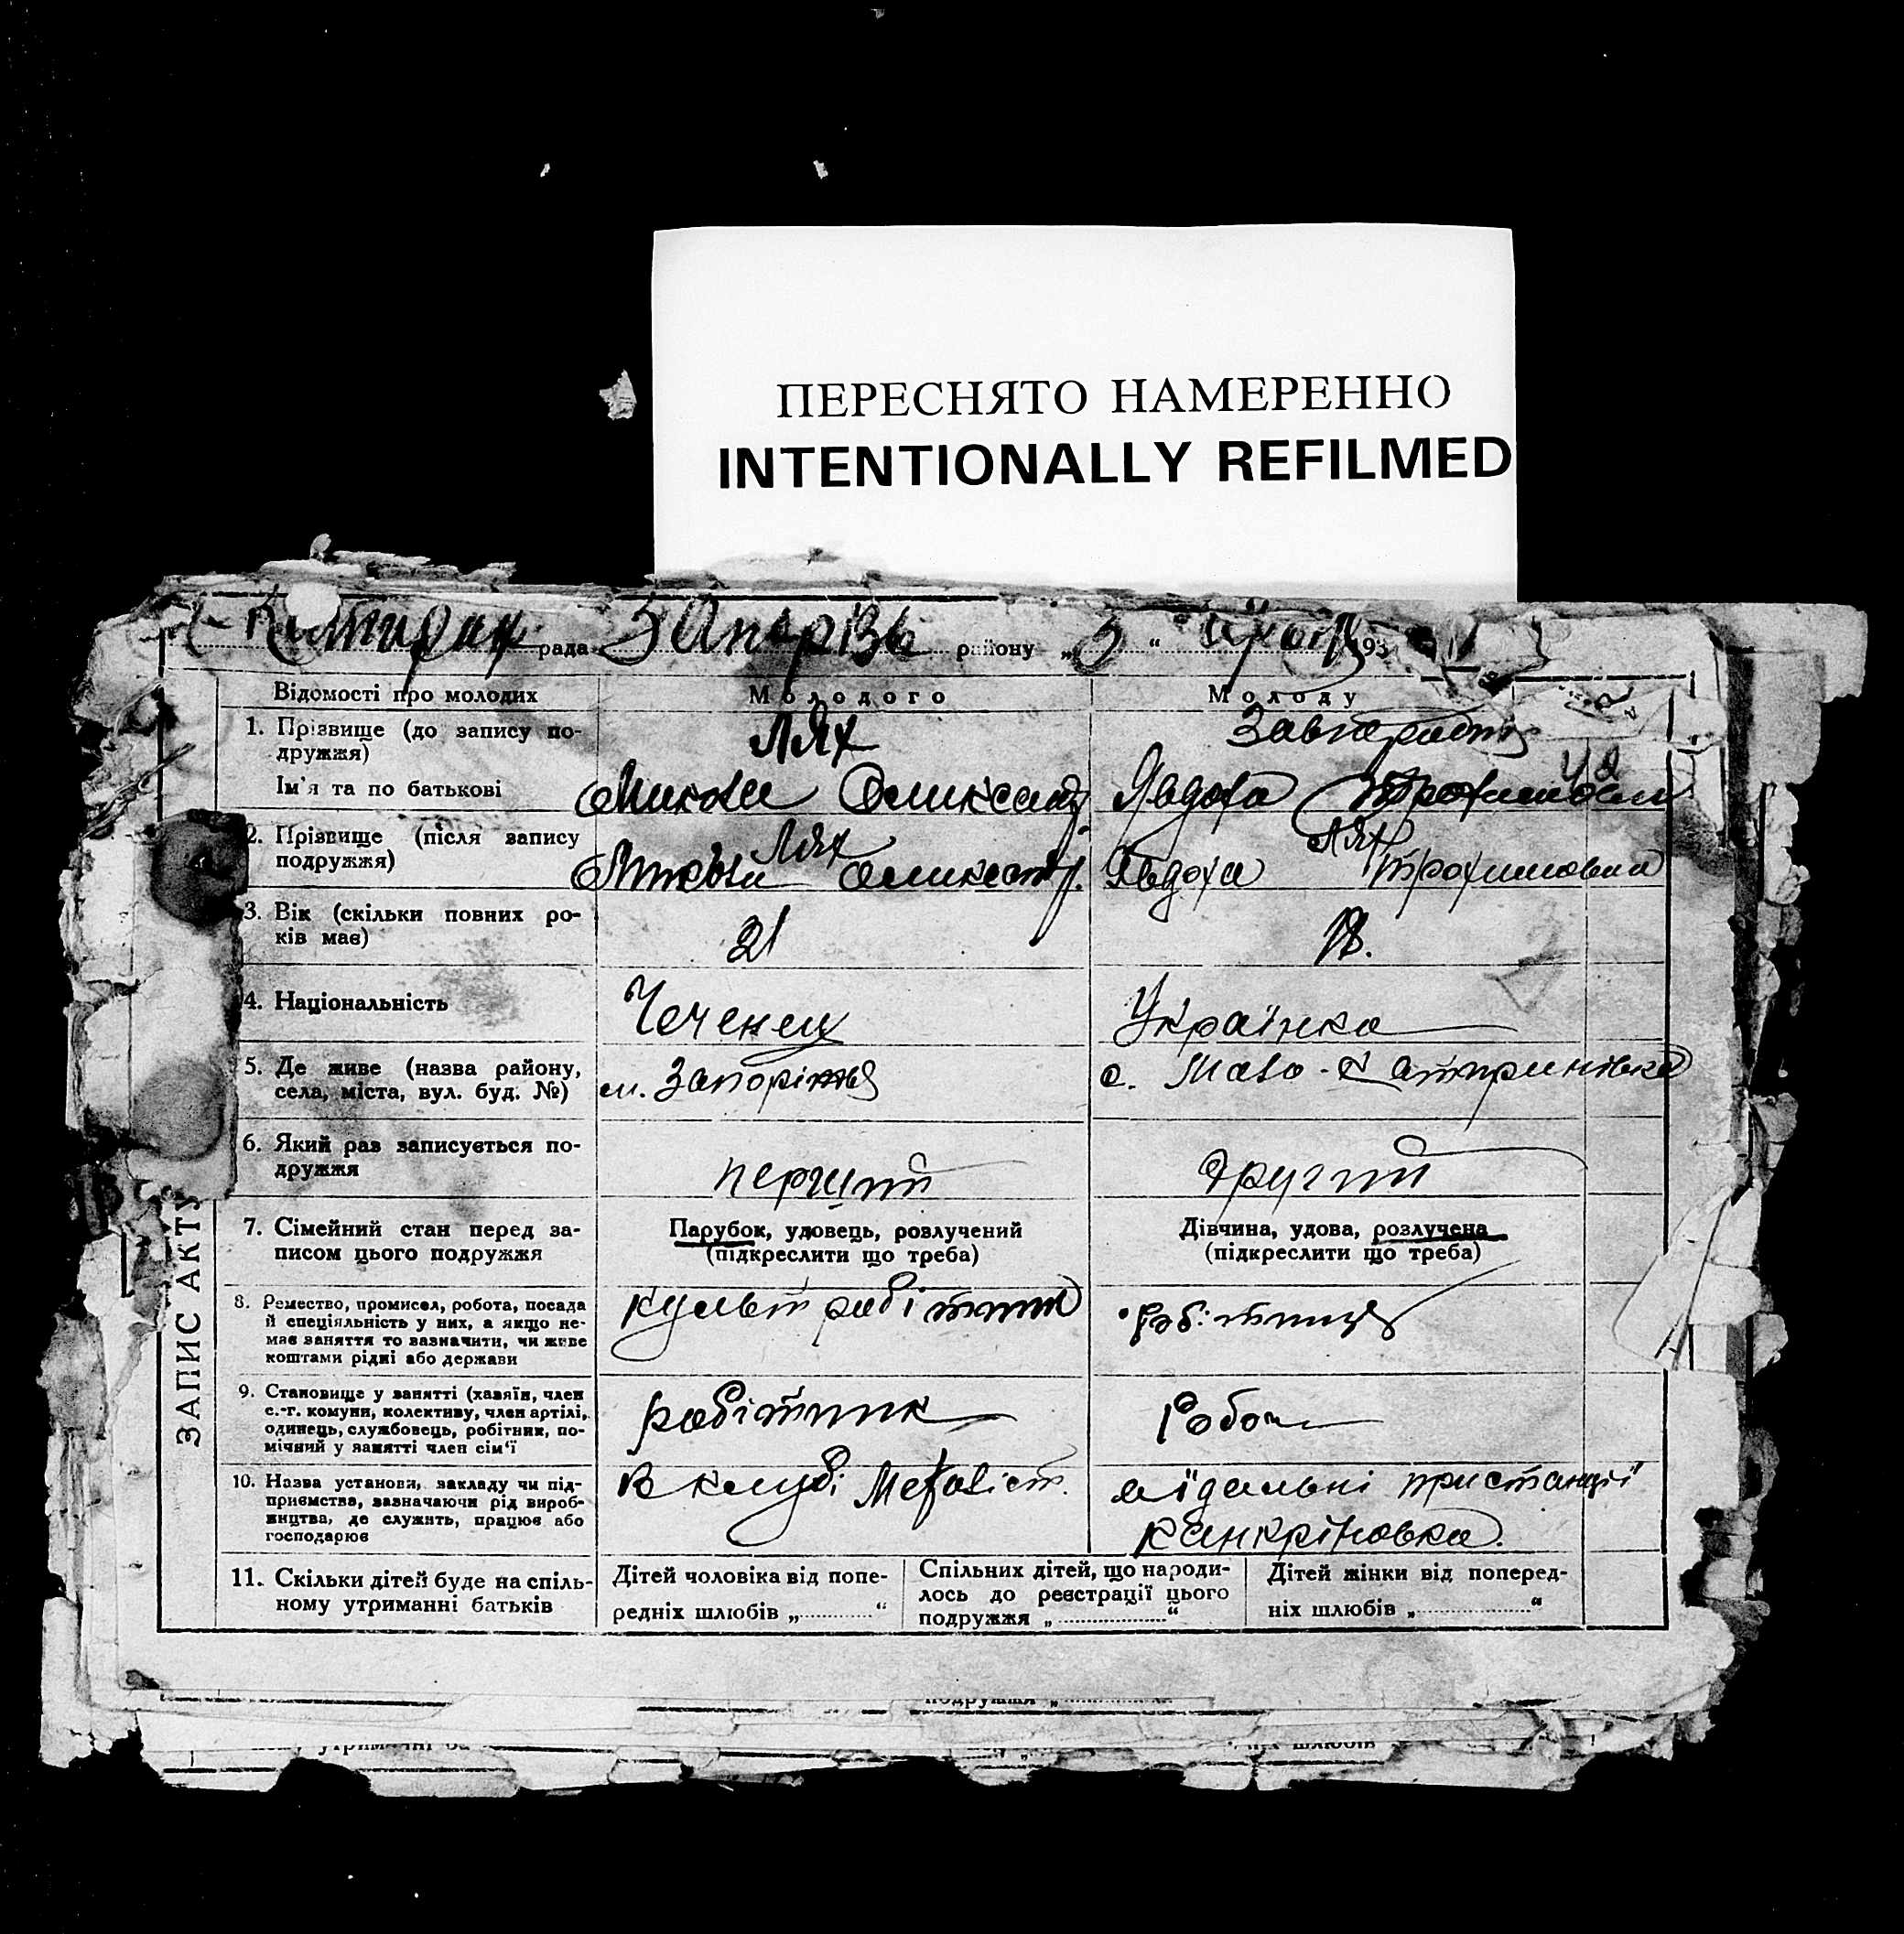 ПЕРЕСНЯТО НАМЕРЕННО
INTENTIONALLY REFILMED
рада Запорізь району „3“ 193
Відомості про молодих Молодого Молоду
1. Прізвище (до запису по-
дружжя)
Лях
Ім'я та по батькові
Явдоха
2. Прізвище (після запису
подружжя)
Лях Лях
Явдоха Трохимовна
3. Вік (скільки повних ро-
ків має)
21 18.
4. Національність
Чеченец Українка
5. Де живе (назва району,
села, міста, вул. буд. №)
м. Запоріжжя с. Мало-Катеринівка
6. Який раз записується по-
дружжя
перший другий
7. Сімейний стан перед за-
писом цього подружжя
Парубок, удовець, розлучений
(підкреслити що треба)
Дівчина, удова, розлучена
(підкреслити що треба)
8. Ремество, промисел, робота, посада
й спеціяльність у них, а якщо не-
має заняття то зазначити, чи живе
коштами рідні або держави
культ робітник робітниця
9. Становище у занятті (хазяїн, член
с.-г. комуни, колективу, член артілі,
одинець, службовець, робітник, по-
мічний у занятті член сім'ї
робітник
10. Назва установи, закладу чи під-
приємства, зазначаючи рід вироб-
ництва, де служить, працює або
господарює
В клубі Металіст.
їдальні при станції
Канкріновка.
11. Скільки дітей буде на спіль-
ному утриманні батьків
Дітей чоловіка від попе-
редніх шлюбів „ “
Спільних дітей, що народи-
лось до реєстрації цього
подружжя „ “
Дітей жінки від поперед-
ніх шлюбів „ “
ЗАПИС АКТУ
подружжя „